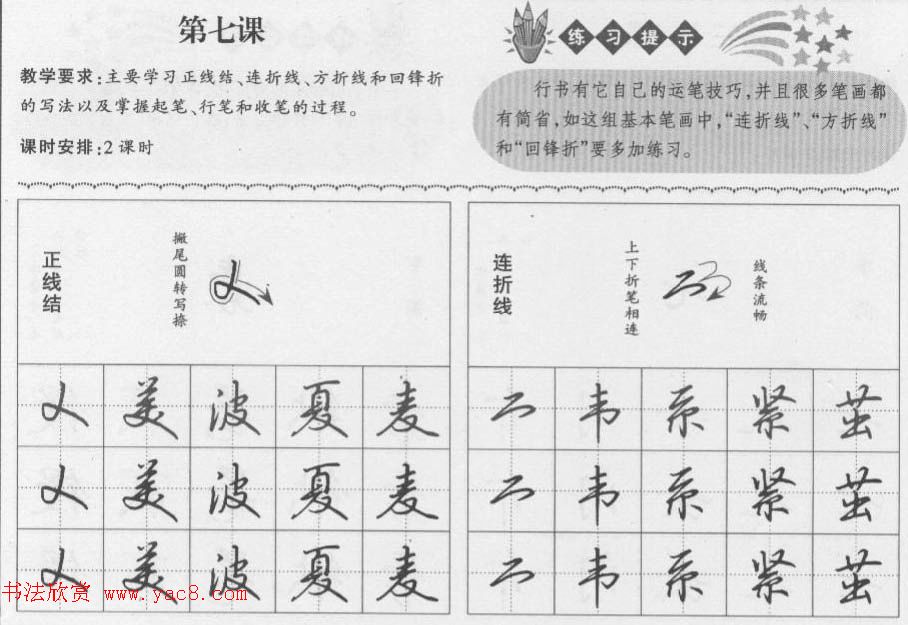 第七课
教学要求:主要学习正线结、连折线、方折线和回锋折
的写法以及掌握起笔、行笔和收笔的过程。
课时安排:2 课时
练习提示
行书有它自己的运笔技巧,并且很多笔画都
有简省,如这组基本笔画中,“连折线”、“方折线”
和“回锋折”要多加练习。
正线结
撇尾圆转写捺
美 波 夏 麦
美 波 夏 麦
美 波 夏 麦
连折线
上下折笔相连
线条流畅
韦 系 紧 茧
韦 系 紧 茧
韦 系 紧 茧
书法欣赏 www.yac8.com